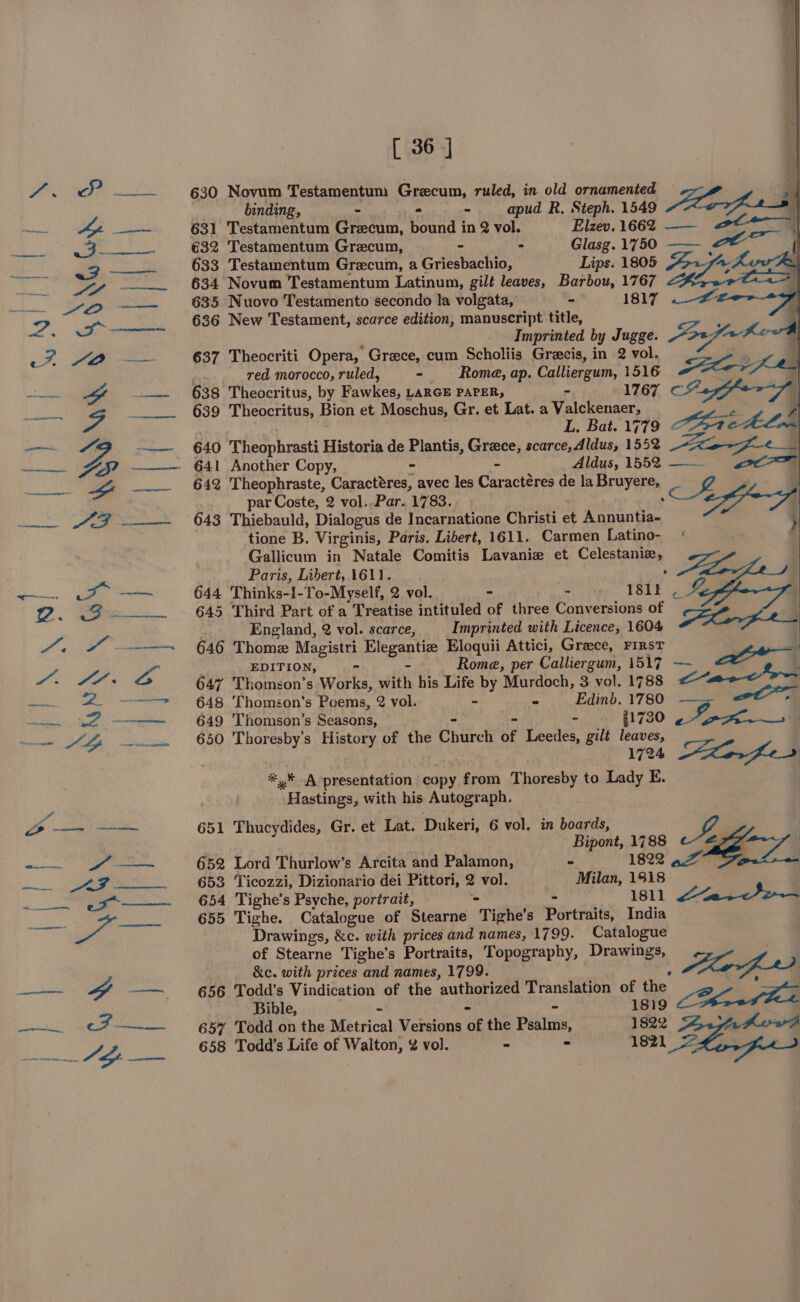 [ 36 ]
630 Novum Testamentum Græcum, ruled, in old ornamented
binding, - - - apud R. Steph. 1549
631 Testamentum Græcum, bound in 2 vol. Elzev. 1662
632 Testamentum Græcum, - - Glasg. 1750
633 Testamentum Græcum, a Griesbachio, Lips. 1805
634 Novum Testamentum Latinum, gilt leaves, Barbou, 1767
635 Nuovo Testamento secondo la volgata, - 1817
636 New Testament, scarce edition, manuscript title,
Imprinted by Jugge.
637 Theocriti Opera, Græce, cum Scholiis Græcis, in 2 vol.
red morocco, ruled, - Romæ, ap. Calliergum, 1516
638 Theocritus, by Fawkes, LARGE PAPER, - 1767
639 Theocritus, Bion et Moschus, Gr. et Lat. a Valckenaer,
L. Bat. 1779
640 Theophrasti Historia de Plantis, Græce, scarce, Aldus, 1552
641 Another Copy, - - Aldus, 1552
642 Theophraste, Caractères, avec les Caractéres de la Bruyere,
par Coste, 2 vol. Par. 1783.
643 Thiebauld, Dialogus de Incarnatione Christi et Annuntia-
tione B. Virginis, Paris. Libert, 1611. Carmen Latino-
Gallicum in Natale Comitis Lavaniæ et Celestaniæ,
Paris, Libert, 1611.
644 Thinks-I-To-Myself, 2 vol. - - 1811
645 Third Part of a Treatise intituled of three Conversions of
England, 2 vol. scarce, Imprinted with Licence, 1604
646 Thomæ Magistri Elegantiæ Eloquii Attici, Græce, FIRST
EDITION, - - Romæ, per Calliergum, 1517
647 Thomson's Works, with his Life by Murdoch, 3 vol. 1788
648 Thomson's Poems, 2 vol. - - Edinb. 1780
649 Thomson's Seasons, - - - 1730
650 Thoresby's History of the Church of Leedes, gilt leaves,
1724
*** A presentation copy from Thoresby to Lady E.
Hastings, with his Autograph.
651 Thucydides, Gr. et Lat. Dukeri, 6 vol. in boards,
Bipont, 1788
652 Lord Thurlow's Arcita and Palamon, - 1822
653 Ticozzi, Dizionario dei Pittori, 2 vol. Milan, 1818
654 Tighe's Psyche, portrait, - - 1811
655 Tighe. Catalogue of Stearne Tighe's Portraits, India
Drawings, &c. with prices and names, 1799. Catalogue
of Stearne Tighe's Portraits, Topography, Drawings,
&c. with prices and names, 1799.
656 Todd's Vindication of the authorized Translation of the
Bible, - - - 1819
657 Todd on the Metrical Versions of the Psalms, 1822
658 Todd's Life of Walton, 2 vol. - - 1821